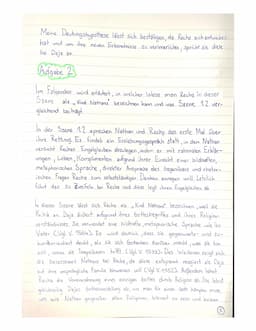 Meine Deutungshypothese lässt sich bestätigen, da Recha sich entwickelt
hat und um ihre neuen Erkenntnisse zu verinnerlichen, spricht sie dies
bei Daja an.
Aufgabe 2
Im Folgenden wird erläutert, in welcher Weise man Recha in dieser
Szene als „Kind Nathans" bezeichnen kann und was Szene 1.2 ver-
gleichend beiträgt.
In der Szene 1.2 sprechen Nathan und Recha das erste Mal über
ihre Rettung. Es findet ein Erziehungsgespräch statt, in dem Nathan
versucht Rechas Engelglauben abzulegen, indem er mit rationalen Erklär-
ungen, Lügen, Komplimenten aufgrund ihrer Einsicht einer bildhaften,
metaphorischen Sprache, direkter Ansprache des Gegenübers und rhetor-
ischen Fragen Recha zum selbstständigen Denken anregen will. Letztlich
führt dies zu Zweifeln bei Recha und diese legt ihren Engelglauben ab.
In dieser Szene lässt sich Recha als „Kind Nathans" bezeichnen, weil die
Kritik an Daja äußert aufgrund ihres Gottesbegriffes und ihres Religions-
verständnisses. Sie verwendet eine bildhafte, metaphorische Sprache wie ihr
Vater (Vgl. V. ). Es wird deutlich, dass sie gegenwarts- und zu-
kunftsorientiert denkt, als sie sich Gedanken darüber macht, was sie tun
soll, wenn die Tempelherrn trifft (Vgl. V. ). Des Weiteren zeigt sich
die Besonnenheit Nathans bei Recha, da diese entspannt reagiert als Daja
auf ihre ursprüngliche Familie hinweisen will (Vgl. V. ). Außerdem lehnt
Recha die Vereinnahmung eines einzigen Gottes durch Religion ab. Sie lehnt
gleichzeitig Dajas Gottesvorstellung ab, wo man für einen Gott kämpfen muss,
um wie Nathan gegenüber allen Religionen tolerant zu sein und keinen